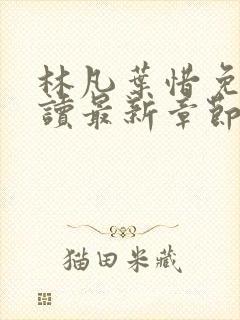 林凡葉惜免
讀最新章節
猫田米藏